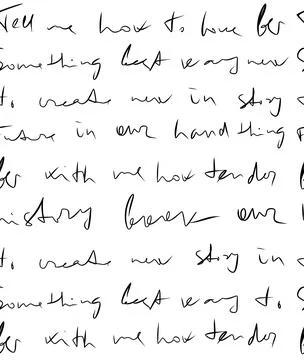 Tell me how to love her
something best way new
to create new in story
future in our hand thing
her with me how tender
history book our
to create new story in
something best way to
her with me how tender